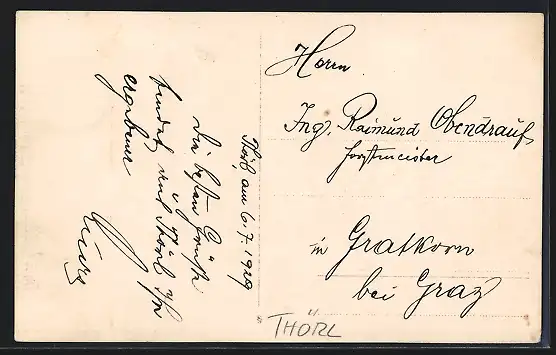 Thörl, am 6.7.1929
Die besten Grüße
sendet aus Thörl Ihr
ergebener
Herrn
Ing. Raimund Obendrauf
Forstmeister
in Gratkorn
bei Graz
THÖRL